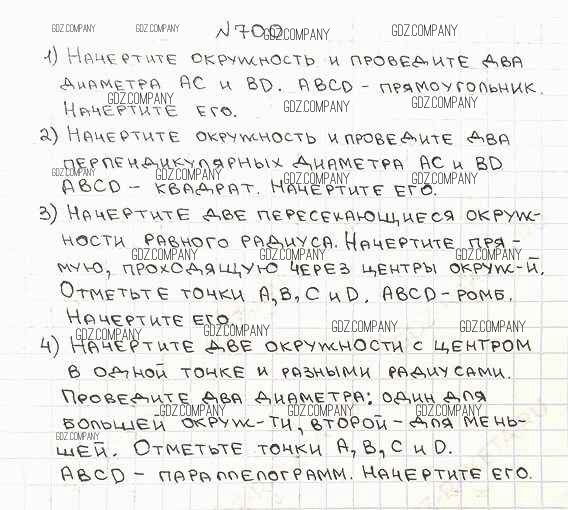 GDZ.COMPANY GDZ.COMPANY №700 GDZ.COMPANY GDZ.COMPANY
1) Начертите окружность и проведите два
диаметра AC и BD. ABCD - прямоугольник.
GDZ.COMPANY GDZ.COMPANY GDZ.COMPANY
Начертите его.
2) Начертите окружность и проведите два
перпендикулярных диаметра AC и BD
GDZ.COMPANY GDZ.COMPANY GDZ.COMPANY GDZ.COMPANY
ABCD - квадрат. Начертите его.
3) Начертите две пересекающиеся окруж-
ности равного радиуса. Начертите пря-
GDZ.COMPANY GDZ.COMPANY GDZ.COMPANY
мую, проходящую через центры окруж-й.
Отметьте точки A, B, C и D. ABCD - ромб.
Начертите его
GDZ.COMPANY GDZ.COMPANY GDZ.COMPANY GDZ.COMPANY
4) Начертите две окружности с центром
в одной точке и разными радиусами.
Проведите два диаметра: один для
GDZ.COMPANY GDZ.COMPANY GDZ.COMPANY
большей окруж-ти, второй - для мень-
GDZ.COMPANY
шей. Отметьте точки A, B, C и D.
ABCD - параллелограмм. Начертите его.